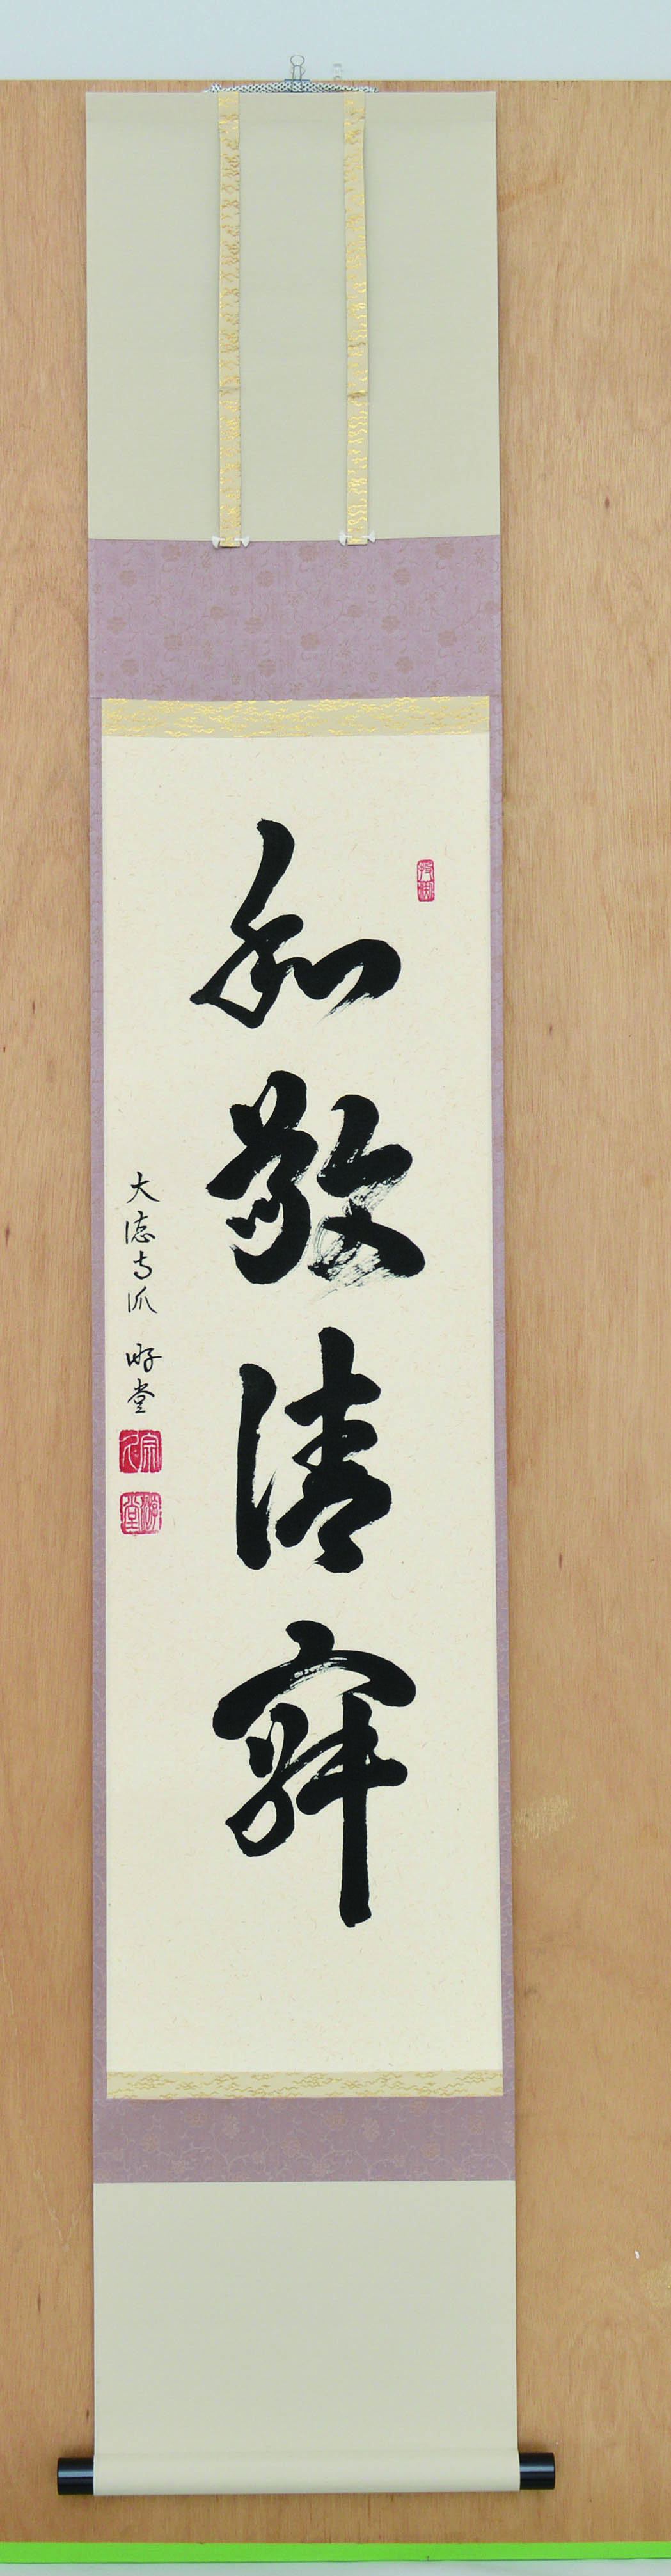 和敬清寂
大徳寺派 堂